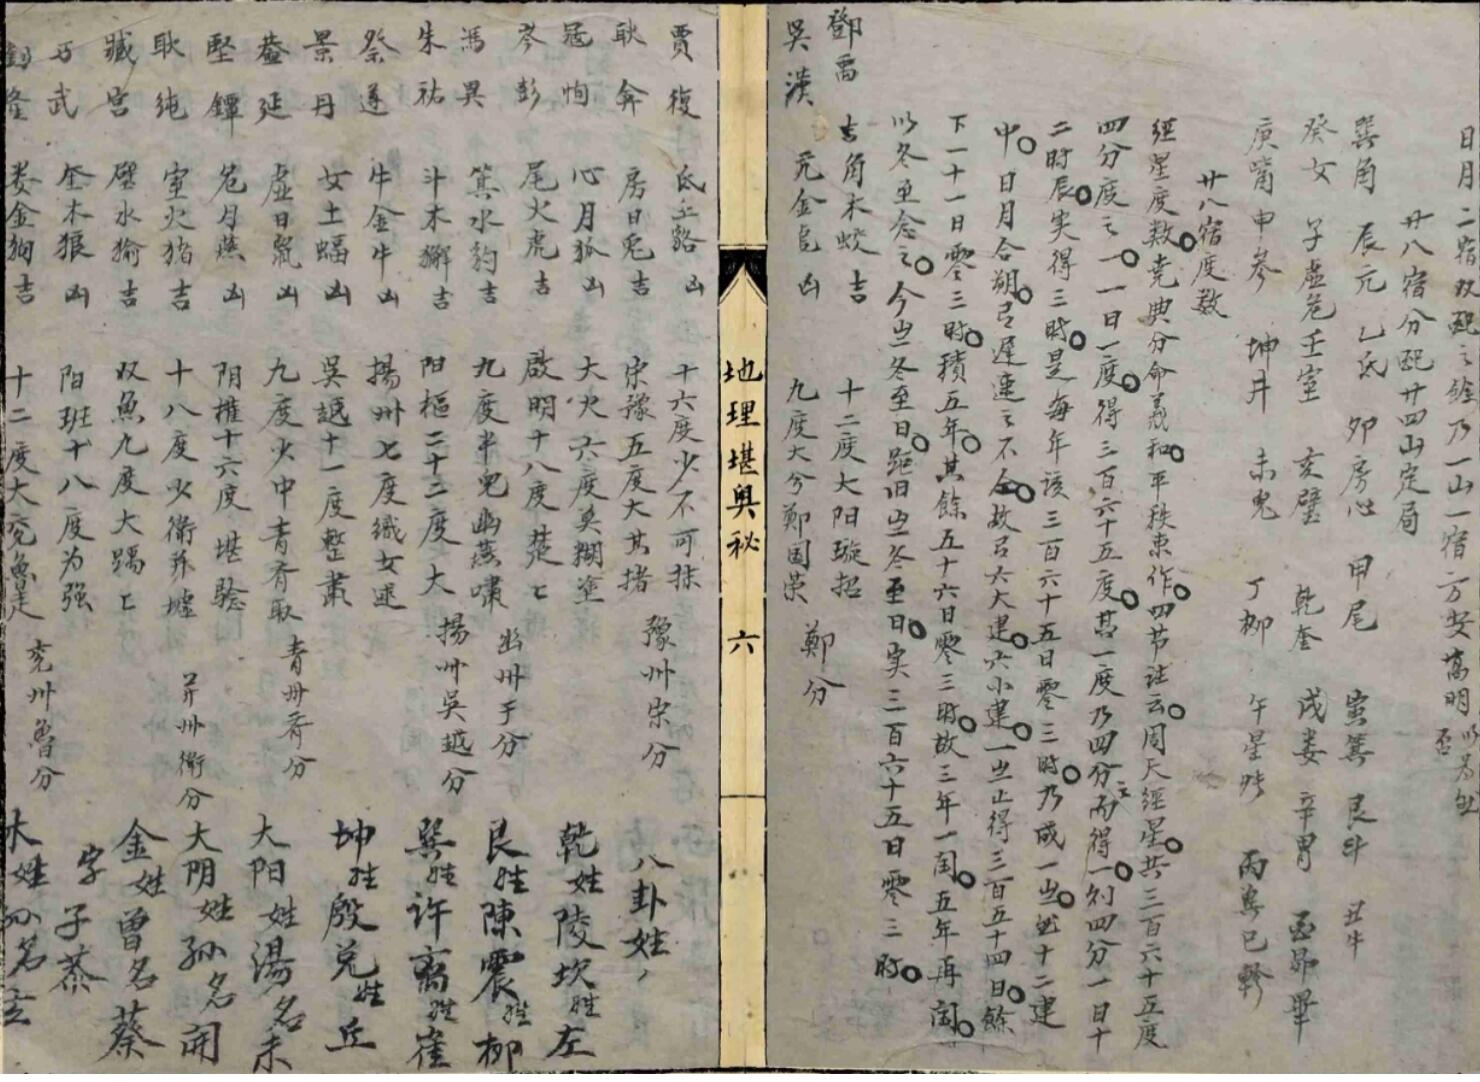 日月二宿双配之餘乃一山一宿方安嵩明
廿八宿分配廿四山定局
巽角 辰亢 乙氐 卯房心 甲尾 寅箕 艮斗 丑牛
癸女 子虛危 壬室 亥壁 乾奎 戌娄 辛胃 酉昴畢
庚觜 申参 坤井 未鬼 丁柳 午星 丙 巳軫
廿八宿度数
經星度数堯典分命羲和平秩東作四节註云周天經星共三百六十五度
四分度之一一日一度得三百六十五度其一度乃四分而得之一刻四分一日十
二時辰实得三時是每年该三百六十五日零三時乃成一岁十二建
中日月合朔有遲速之不仝故有六大建六小建一岁止得三百五十四日餘
下一十一日零三時積五年其餘五十六日零三時故三年一闰五年再闰
以冬至念之今岁冬至日距旧岁冬至日实三百六十五日零三時
鄧禹 吉角木蛟吉 十二度大阳璇招
吳漢 亢金 凶 九度大兮鄭国荣 鄭分
地理堪輿秘 六
賈復 氐土貉凶 十六度少不可抹
耿弇 房日兎吉 宋豫五度大其猪 豫州宋分
冦恂 心月狐凶 大火六度奠糊塗
岑彭 尾火虎吉 啟明十八度楚匕
馮異 箕水豹吉 九度半兒幽燕嘯 幽州于分
朱祐 斗木獬吉 阳樞二十二度大 揚州吳越分
祭遵 牛金牛凶 揚州七度織女逆
景丹 女土蝠凶 吳越十一度整肅
蓋延 虛日鼠凶 九度火中青齊取 青州齊分
堅鐔 危月燕凶 阴權十六度堪騐
耿纯 室火猪吉 十八度少衛并墟 并州衛分
臧宮 壁水㺄吉 双魚九度大踽匕
馬武 奎木狼凶 阳班十八度为强
劉隆 娄金狗吉 十二度大兖魯走 兖州魯分
八卦姓
乾姓陵坎姓左
艮姓陳震姓柳
巽姓许离姓崔
坤姓殷兑姓丘
大阳姓湯名末
大阴姓孙名開
金姓曾名蔡
字子恭
木姓孙名立